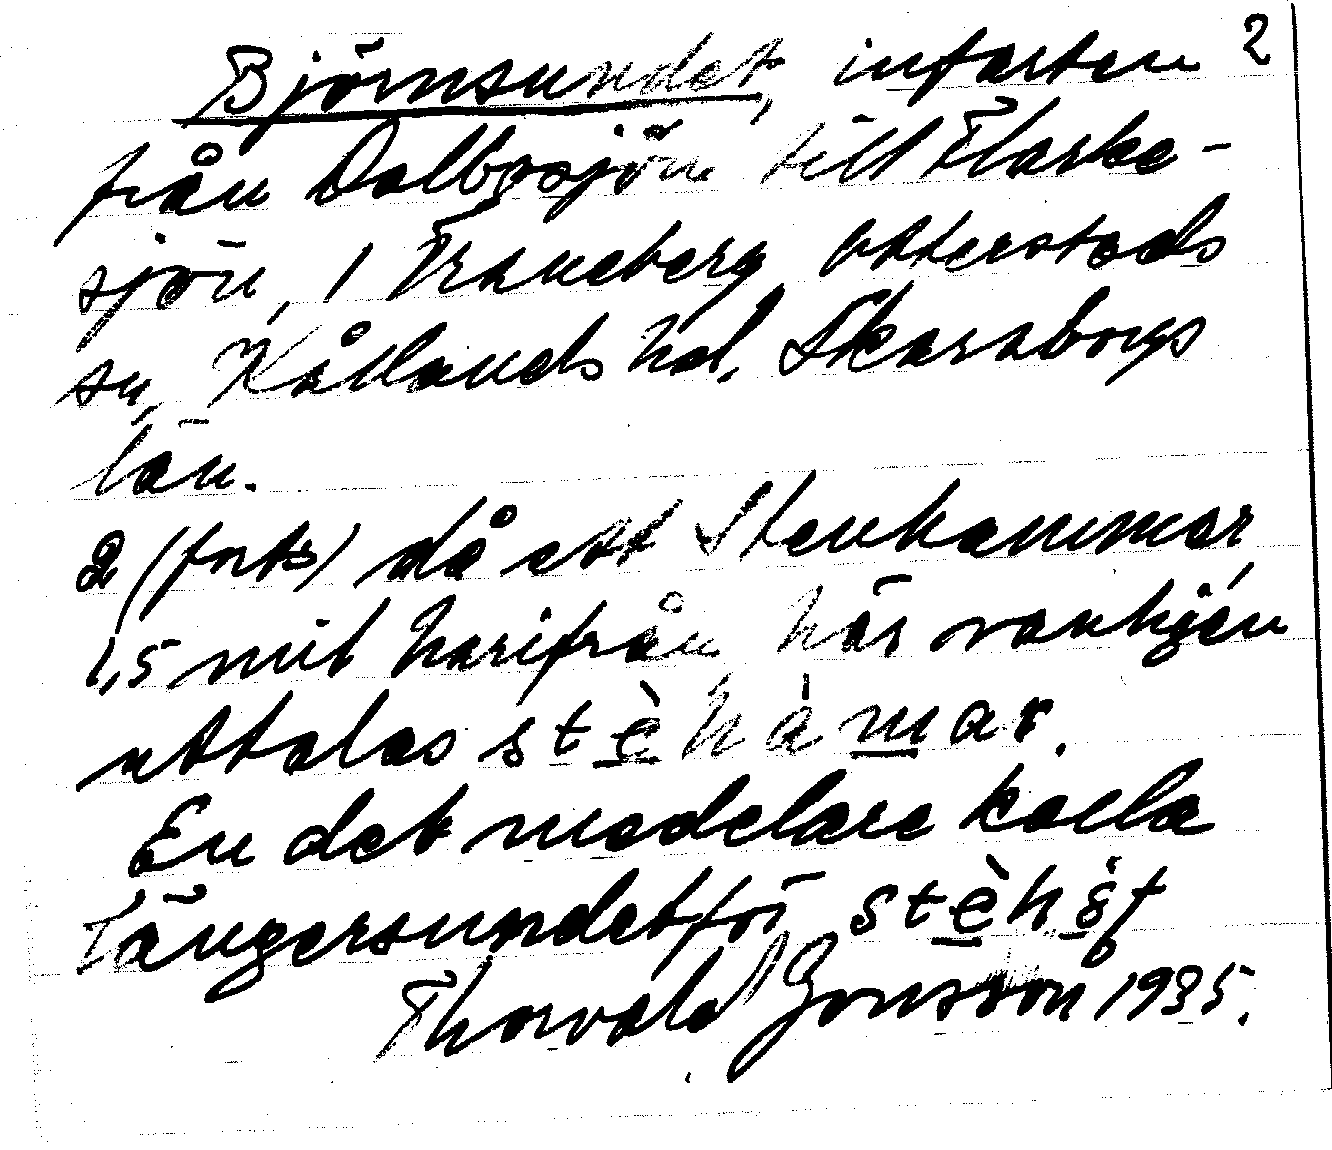 2
Björnsundet, infarten
från Dalbosjön till Flarke-
sjön, i Traneberg Otterstads
sn, Kållands hd. Skaraborgs
län.
2 (forts) då ett Stenhammar
1,5 mil härifrån här vanligen
uttalas stèhàmar.
En del meddelare kalla
Tängersundet för stèh
Thorvald Jonsson 1935.